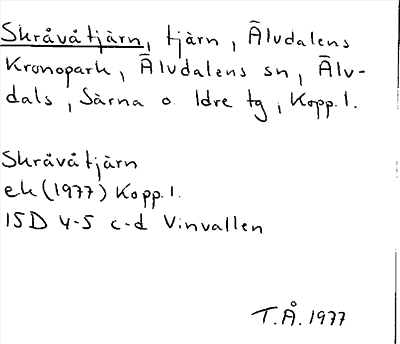 Skråvåtjärn, tjärn, Älvdalens
Kronopark, Älvdalens sn, Älv-
dals, Särna o. Idre tg, Kopp.l.
Skråvåtjärn
ek (1977) Kopp.l.
15D 4-5 c-d Vinvallen
T.Å. 1977